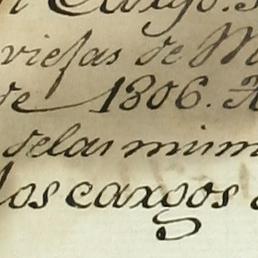 Cargo.
viejas de M
de 1806. A
delas mism
los cargos